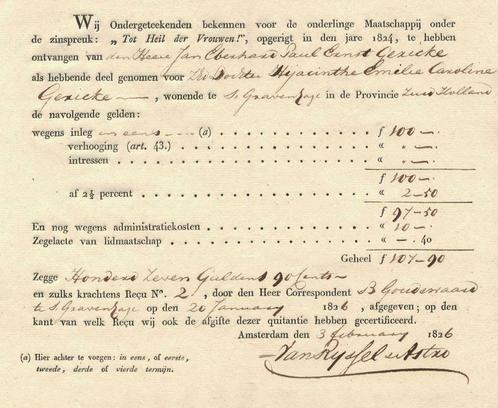 Wij Ondergeteekenden bekennen voor de onderlinge Maatschappij onder
de zinspreuk: „Tot Heil der Vrouwen!", opgerigt in den jare 1824, te hebben
ontvangen van den Heere Jan Eberhard Paul Ernst Gericke
als hebbende deel genomen voor Zyne Dochter Hyacinthe Emilie Caroline
Gericke —, wonende te S. Gravenhage in de Provincie Zuid Holland
de navolgende gelden:
wegens inleg in eens — (a) . . . . . ƒ 100 —.
verhooging (art. 43.) . . . . . « „ —.
intressen . . . . . « „ —.
ƒ 100 —.
af 2½ percent . . . . . « 2-50
ƒ 97-50
En nog wegens administratiekosten . . . . . « 10 —.
Zegelacte van lidmaatschap . . . . . « —. 40
Geheel ƒ 107-90
Zegge Honderd Zeven Guldens 90 Cents —
en zulks krachtens Reçu N°. 2, door den Heer Correspondent B Goudswaard
te S. Gravenhage op den 20 January 1826, afgegeven; op den
kant van welk Reçu wij ook de afgifte dezer quitantie hebben gecertificeerd.
Amsterdam den 3 february 1826
Van Ryssel & Astro
(a) Hier achter te voegen: in eens, of eerste,
tweede, derde of vierde termijn.